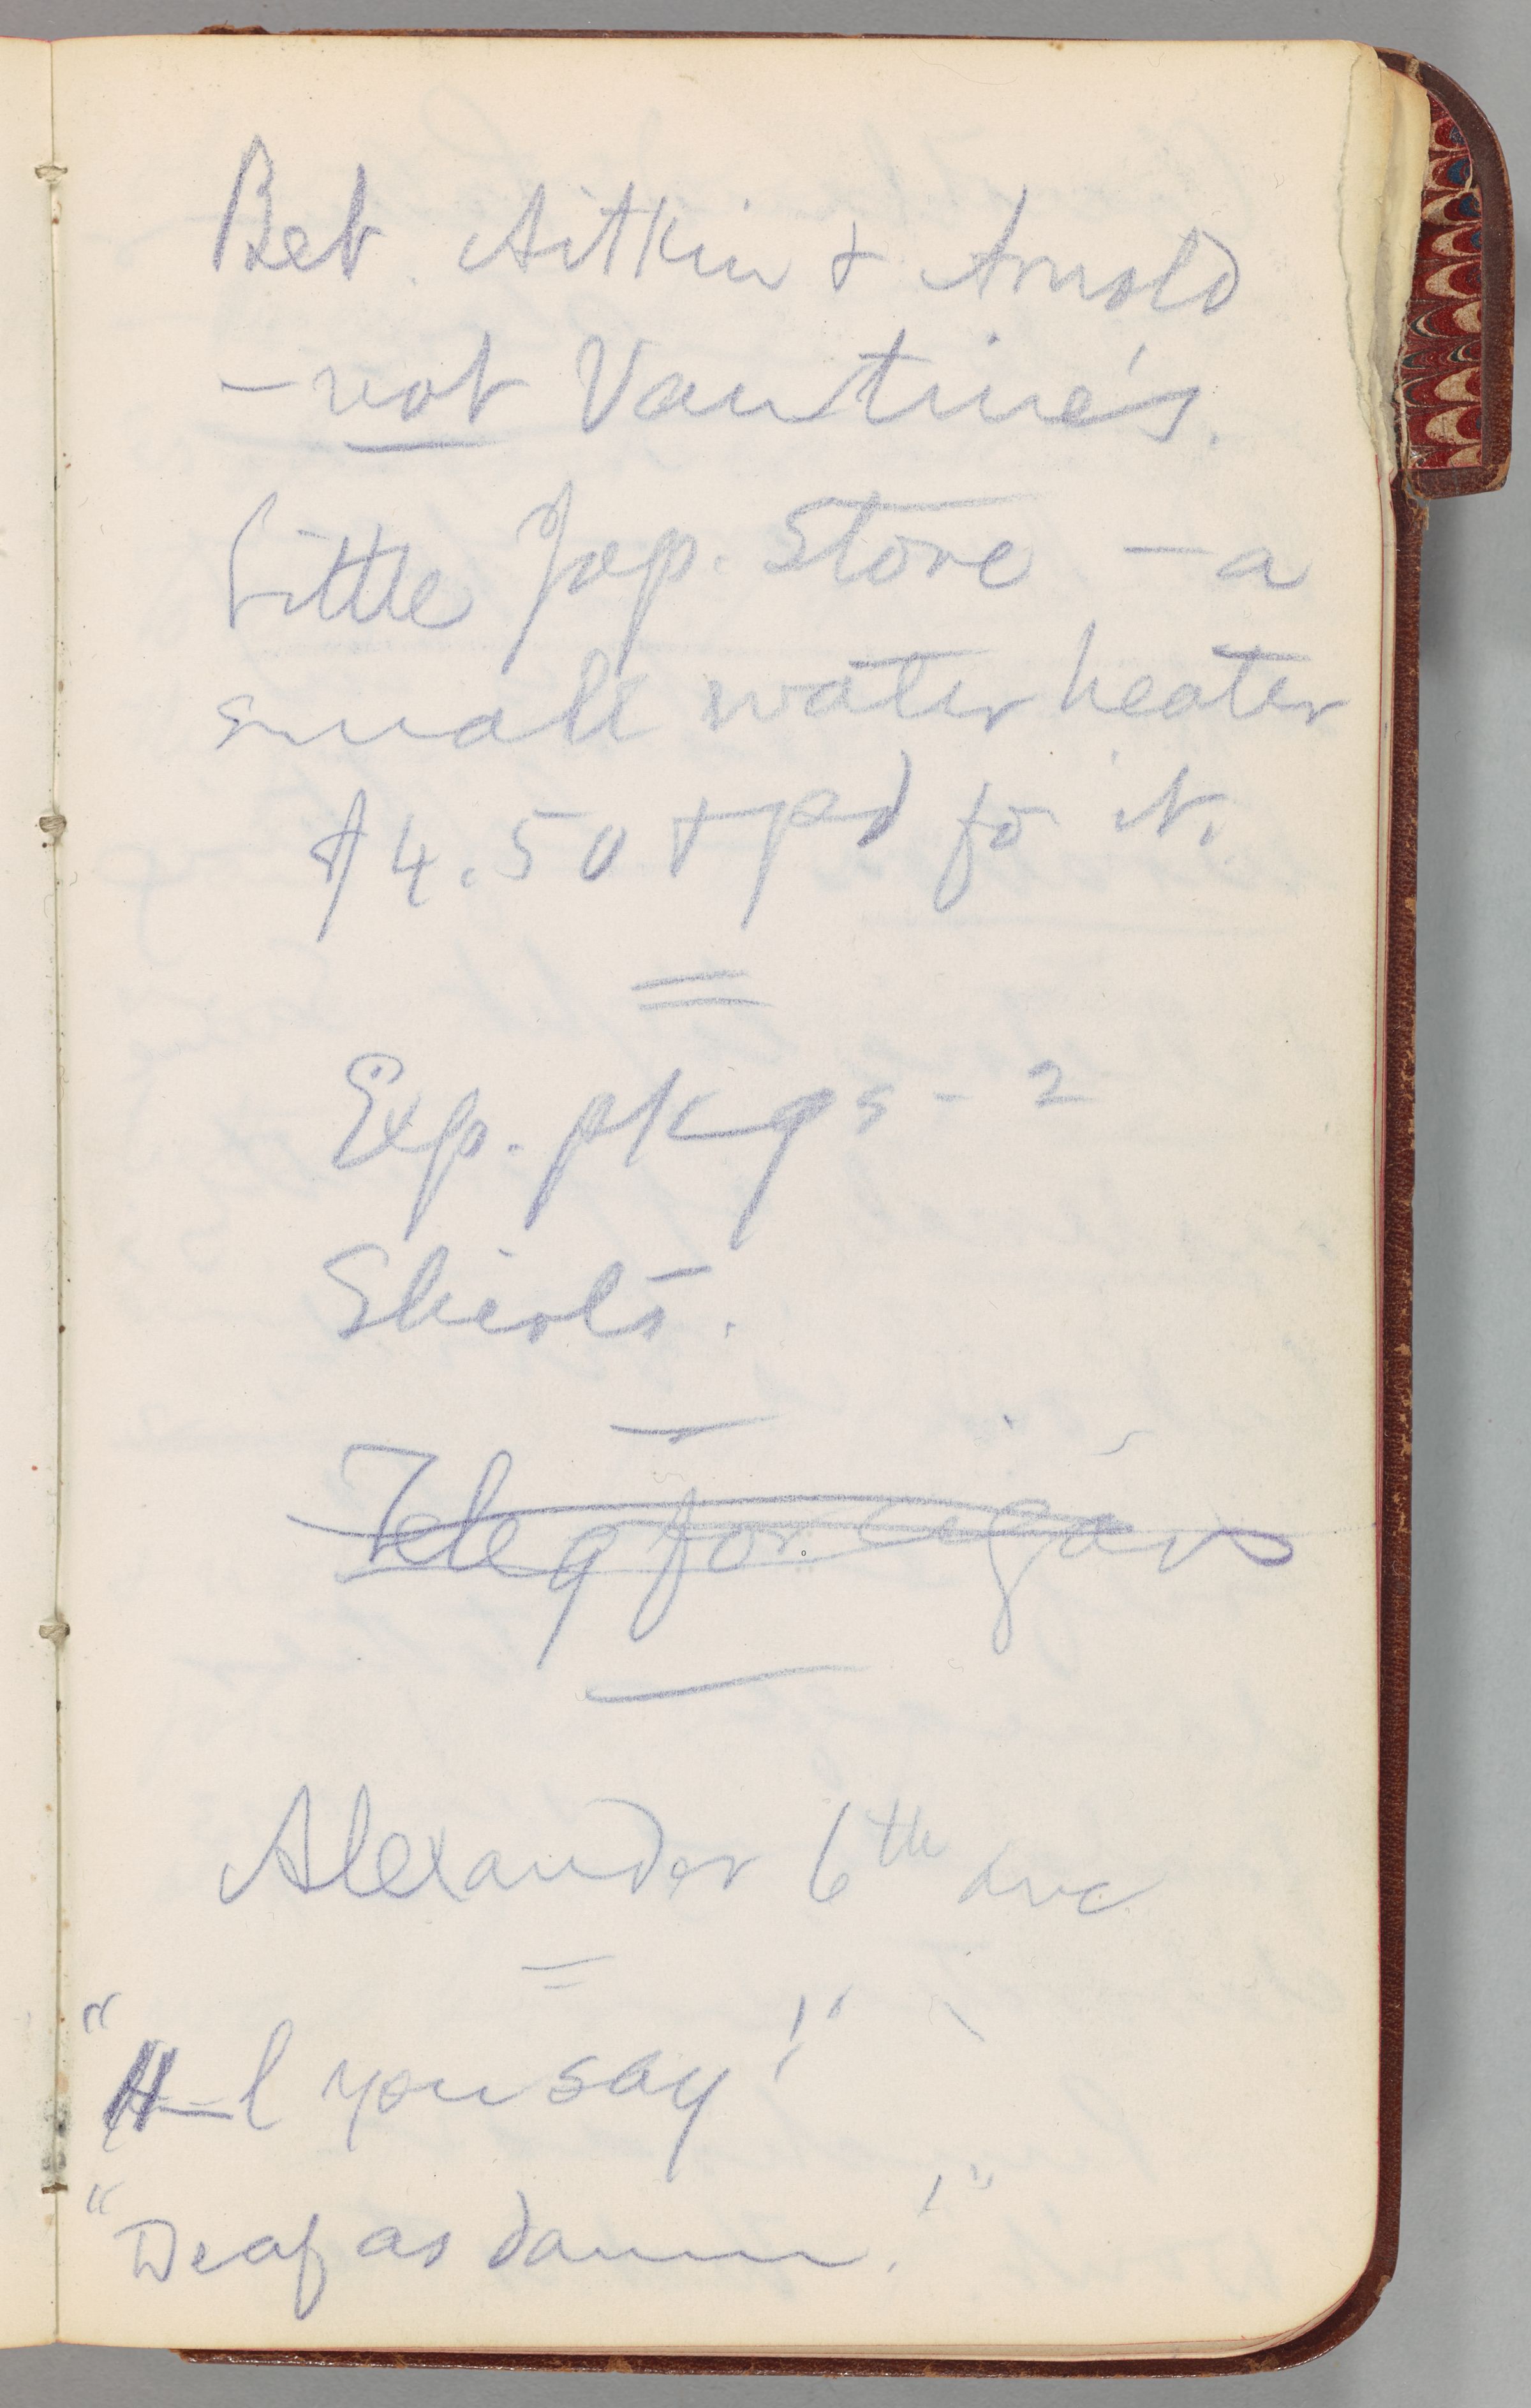 Bet. Aitkin & Arnold
— not Vantine's.
Little Jap. Store — a
small water heater
$4.50 & pd fo it.
Exp. pkgs - 2
Shirts.
Teleg for cigars
Alexander 6th Ave
"H—l you say!"
"Deaf as damn!"